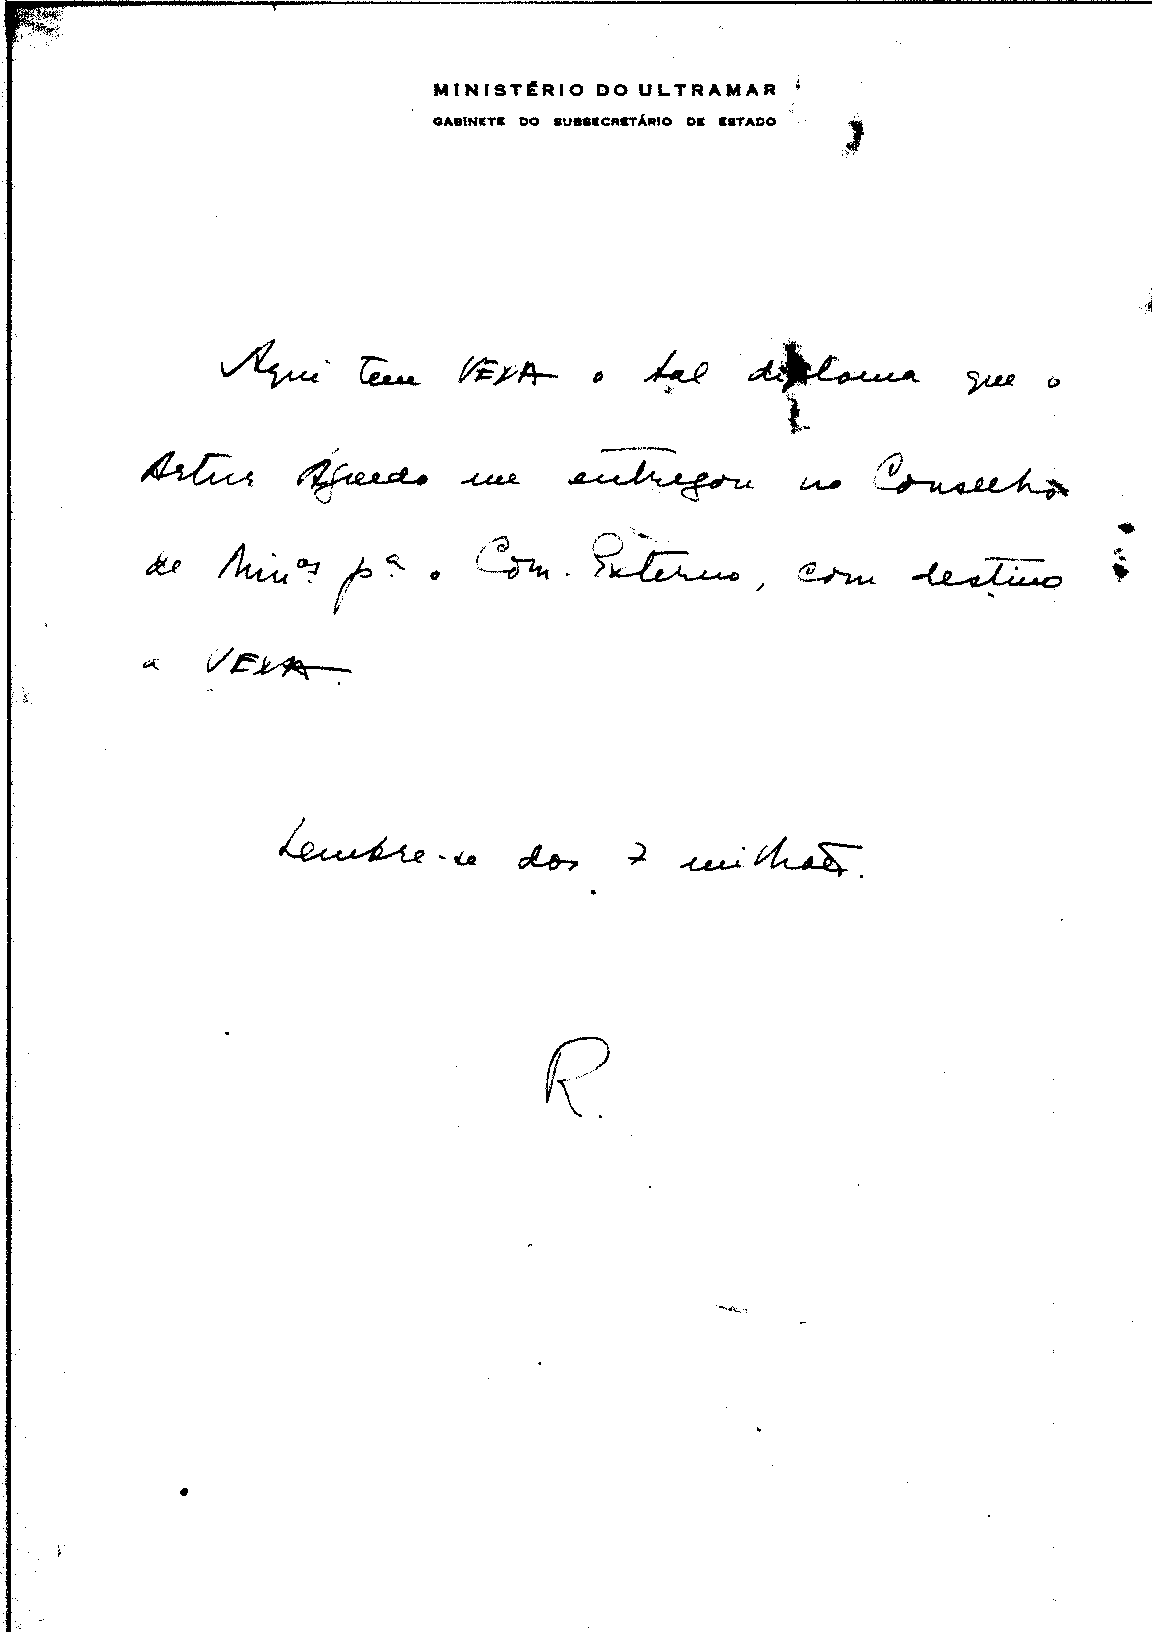 MINISTÉRIO DO ULTRAMAR
GABINETE DO SUBSECRETÁRIO DE ESTADO
Aqui tem VEXA o tal diploma que o
Artur Águedo me entregou no Conselho
de Min.os pª o Com. Externo, com destino
a VEXA.
Lembre-se dos 7 milhões.
R.